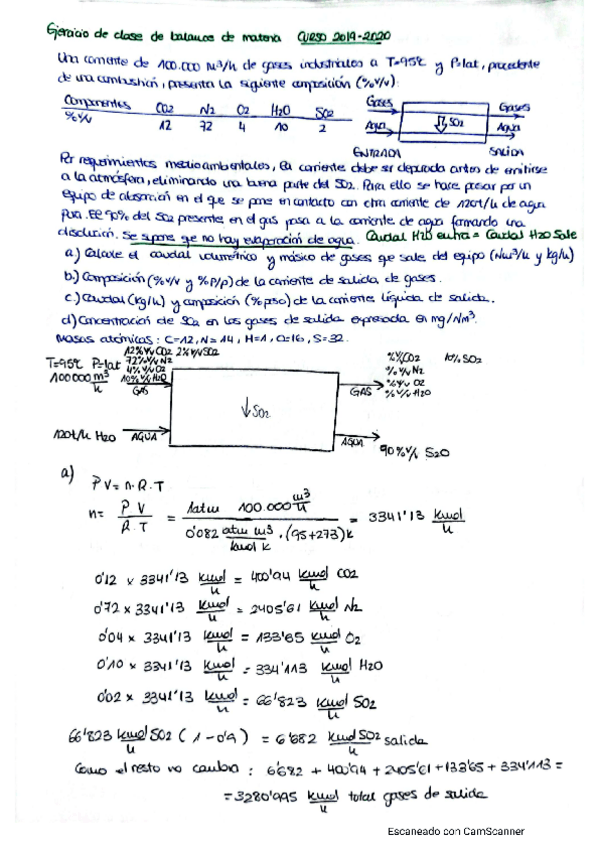 Ejercicio de clase de balance de materia CURSO 2019-2020
Una corriente de 100.000 m³/h de gases industriales a T=95ºC y P=1at, procedente
de una combustión, presenta la siguiente composición (%V/V):
Componentes CO2 N2 O2 H2O SO2
%V/V 12 72 4 10 2
Gases Gases
Agua SO2 Agua
ENTRADA SALIDA
Por requerimientos medioambientales, la corriente debe ser depurada antes de emitirse
a la atmósfera, eliminando una buena parte del SO2. Para ello se hace pasar por un
equipo de absorción en el que se pone en contacto con otra corriente de 120t/h de agua
pura. El 90% del SO2 presente en el gas pasa a la corriente de agua formando una
disolución. Se supone que no hay evaporación de agua. Caudal H2O entra = Caudal H2O Sale
a) Calcule el caudal volumétrico y másico de gases que sale del equipo (Nm³/h y kg/h)
b) Composición (%V/V y %P/P) de la corriente de salida de gases.
c) Caudal (kg/h) y composición (% peso) de la corriente líquida de salida.
d) Concentración de SO2 en los gases de salida expresada en mg/Nm³.
Masas atómicas: C=12, N=14, H=1, O=16, S=32.
T=95ºC P=1at 12%V/V CO2 2%V/V SO2
72%V/V N2
4%V/V O2
100000 m³/h 10%V/V H2O
GAS
120t/h H2O AGUA
↓SO2
GAS %V/V CO2 10% SO2
%V/V N2
%V/V O2
%V/V H2O
AGUA
90%V/V S2O
a) P V = n. R. T
n = P. V / R. T = 1atm 100.000 m³/h / 0'082 atm m³/kmol k . (95+273)k = 3341'13 kmol/h
0'12 x 3341'13 kmol/h = 400'94 kmol/h CO2
0'72 x 3341'13 kmol/h = 2405'61 kmol/h N2
0'04 x 3341'13 kmol/h = 133'65 kmol/h O2
0'10 x 3341'13 kmol/h = 334'113 kmol/h H2O
0'02 x 3341'13 kmol/h = 66'823 kmol/h SO2
66'823 kmol/h SO2 (1-0'9) = 6'682 kmol SO2/h salida
Como el resto no cambia: 6'682 + 400'94 + 2405'61 + 133'65 + 334'113 =
= 3280'995 kmol/h total gases de salida
Escaneado con CamScanner